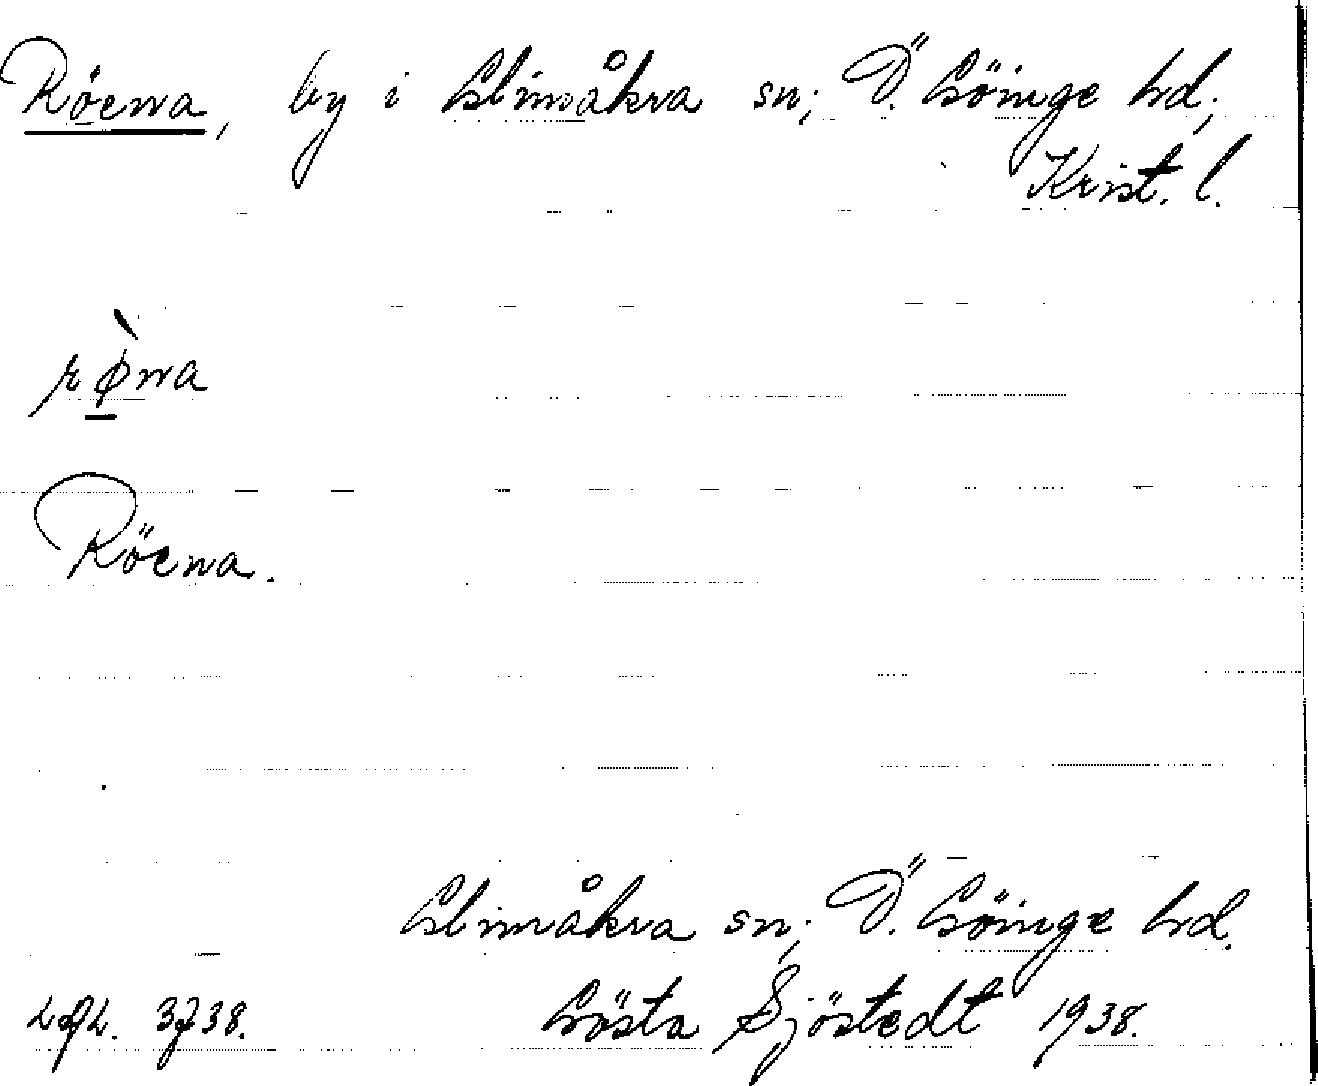 Röena, by i Glimåkra sn; Ö. Göinge hd;
Krist. l.
rø̀na
Röena.
Glimåkra sn; Ö. Göinge hd.
3738. Gösta Sjöstedt 1938.